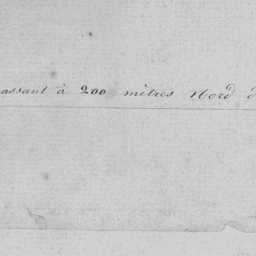 assant à 200 mètres Nord d